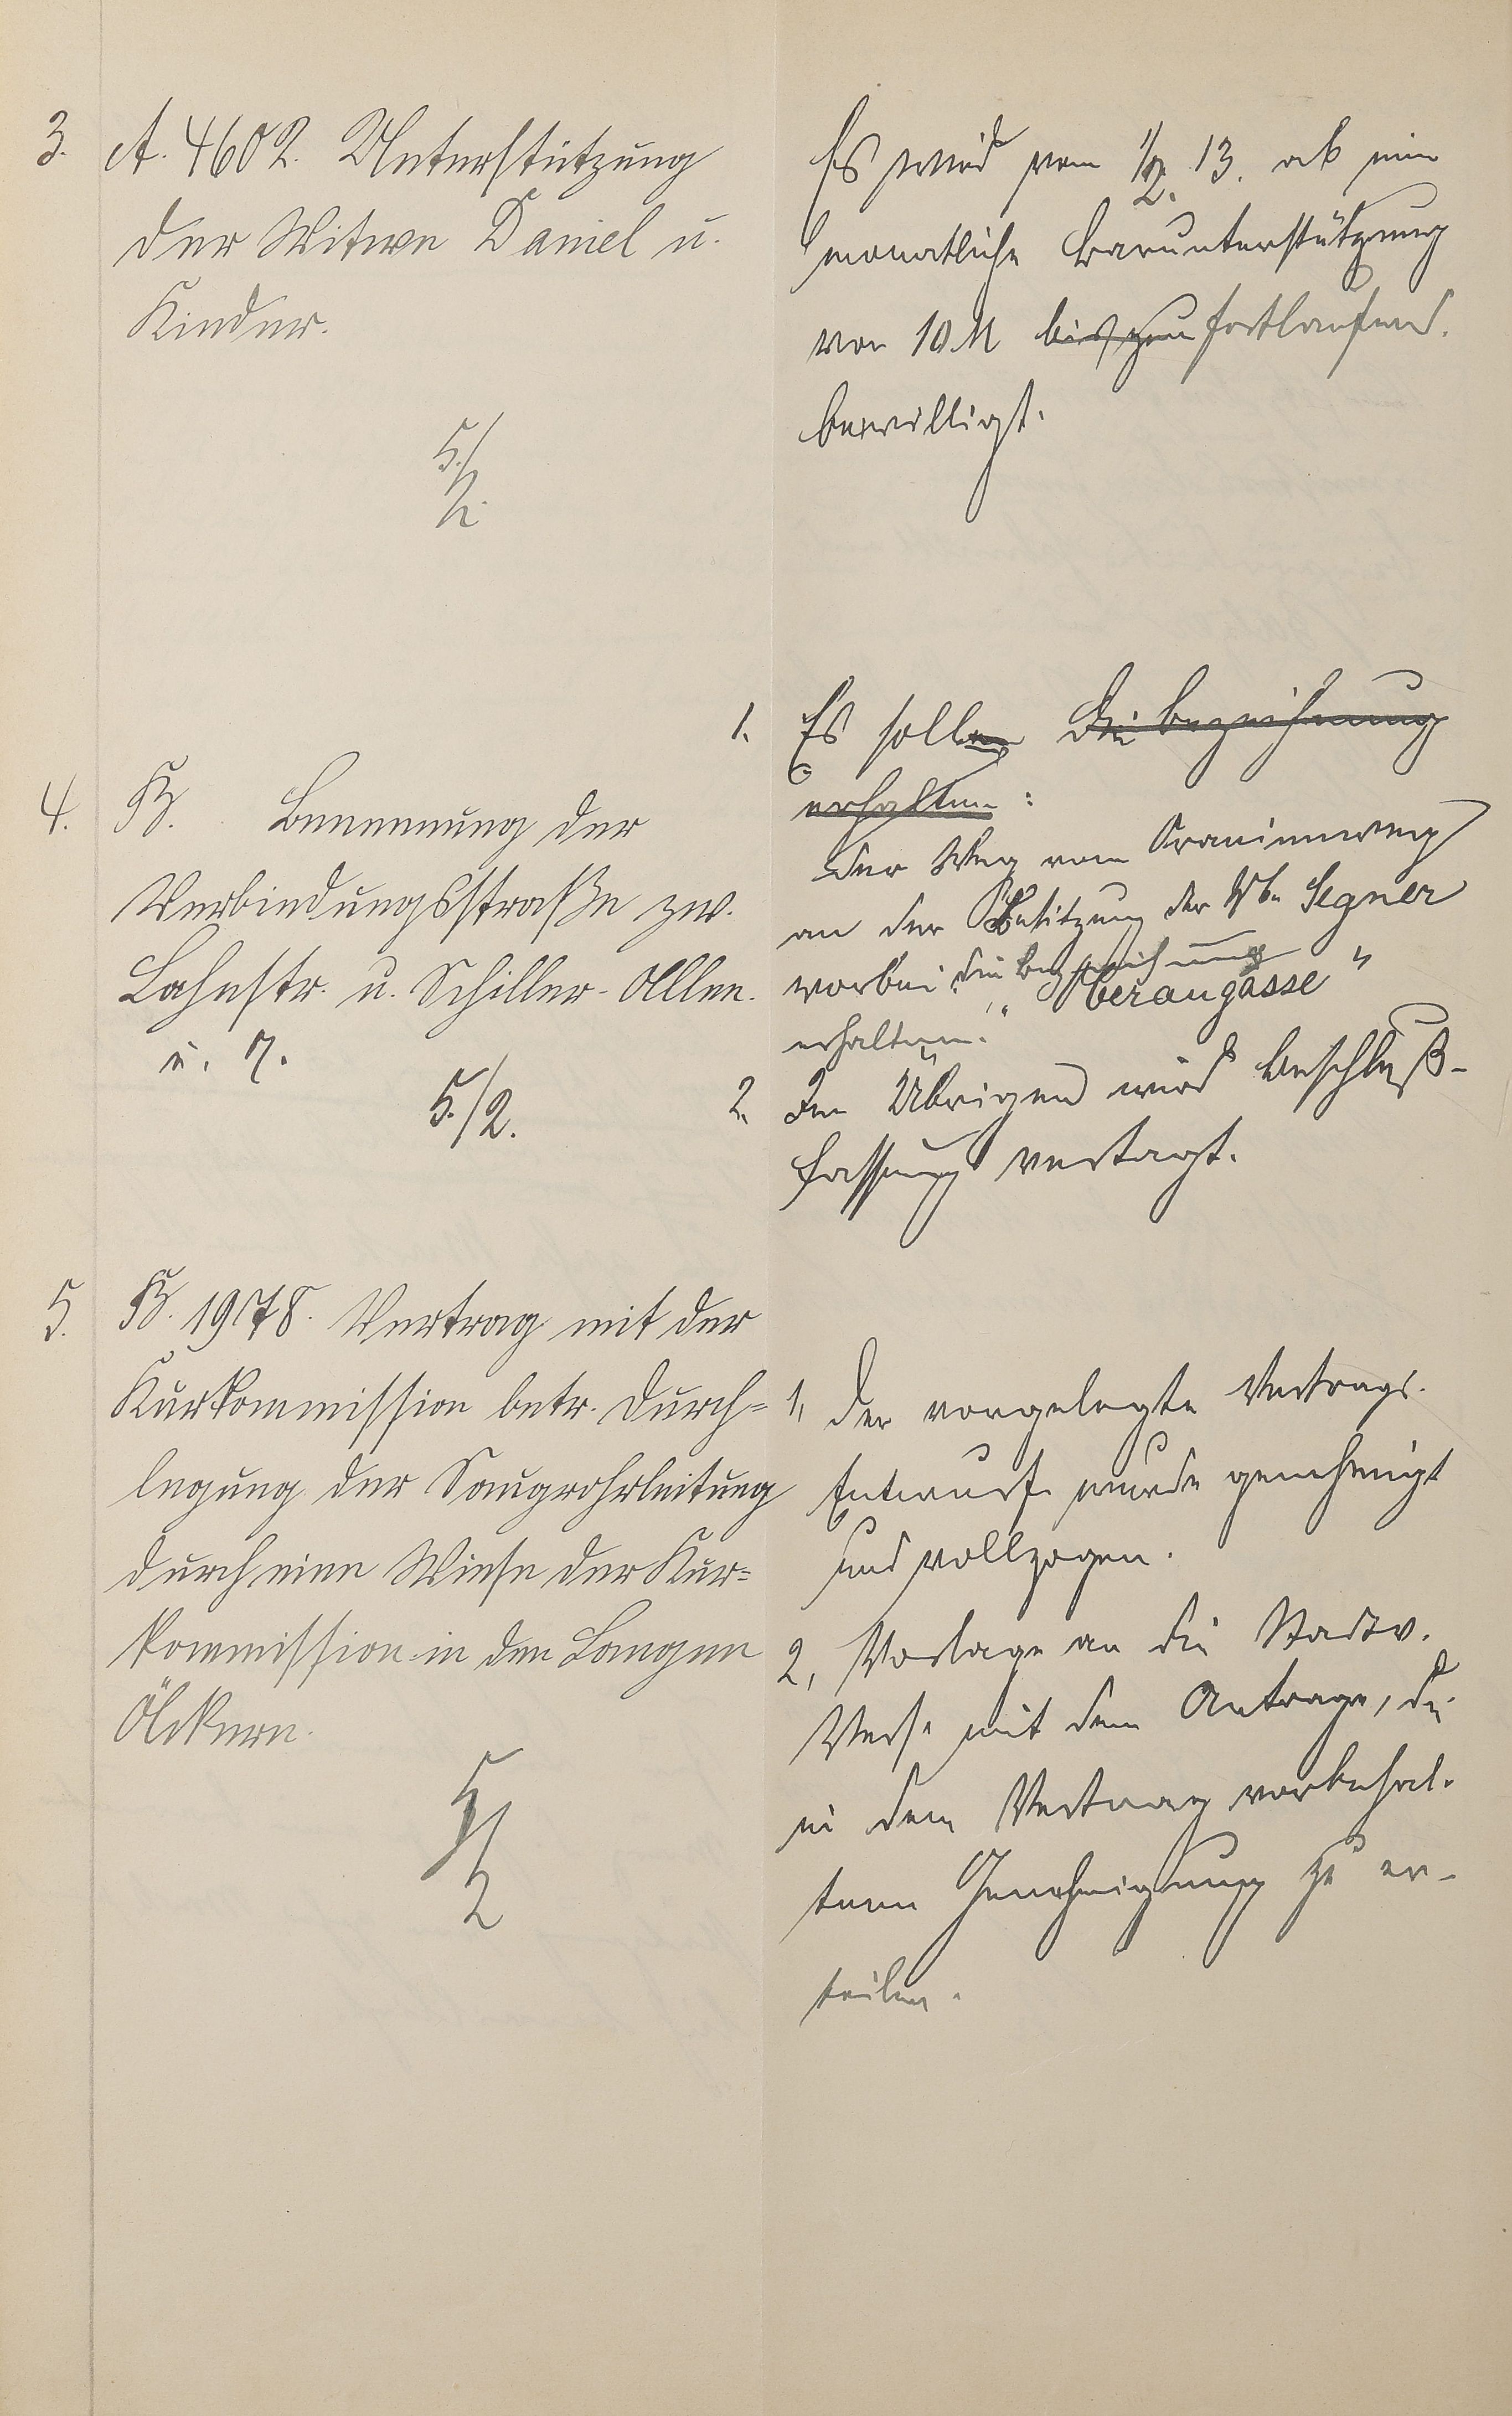 3. A. 4602. Unterstützung
der Witwe Daniel u.
Kinder.
5./2.
Es wird vom 1/2. 13. ab eine
monatliche Barunterstützung
von 10 M bis zum fortlaufend.
bewilligt.
4. B. Benennung der
Verbindungsstraße zw.
Lahnstr. u. Schiller-Allee.
u. 7.
5./2.
1. Es sollen die Bezeichnung
erhalten:
der Weg vom Oranienweg
an der Besitzung der Wwe Segner
vorbei die Bezeichnung
"Oberaugasse"
erhalten.
2. Im Übrigen wird Beschluß-
fassung vertagt.
5. B. 1978. Vertrag mit der
Kurkommission betr. Durch=
legung der Saugrohrleitung
durch eine Wiese der Kur=
kommission in den Langen
Äckern.
5/2
1, Der vorgelegte Vertrags-
Entwurf wurde genehmigt
und vollzogen.
2, Vorlage an die Stadtv.
Vers. mit dem Antrage, die
in dem Vertrag vorbehal-
tene Genehmigung zu er-
teilen.